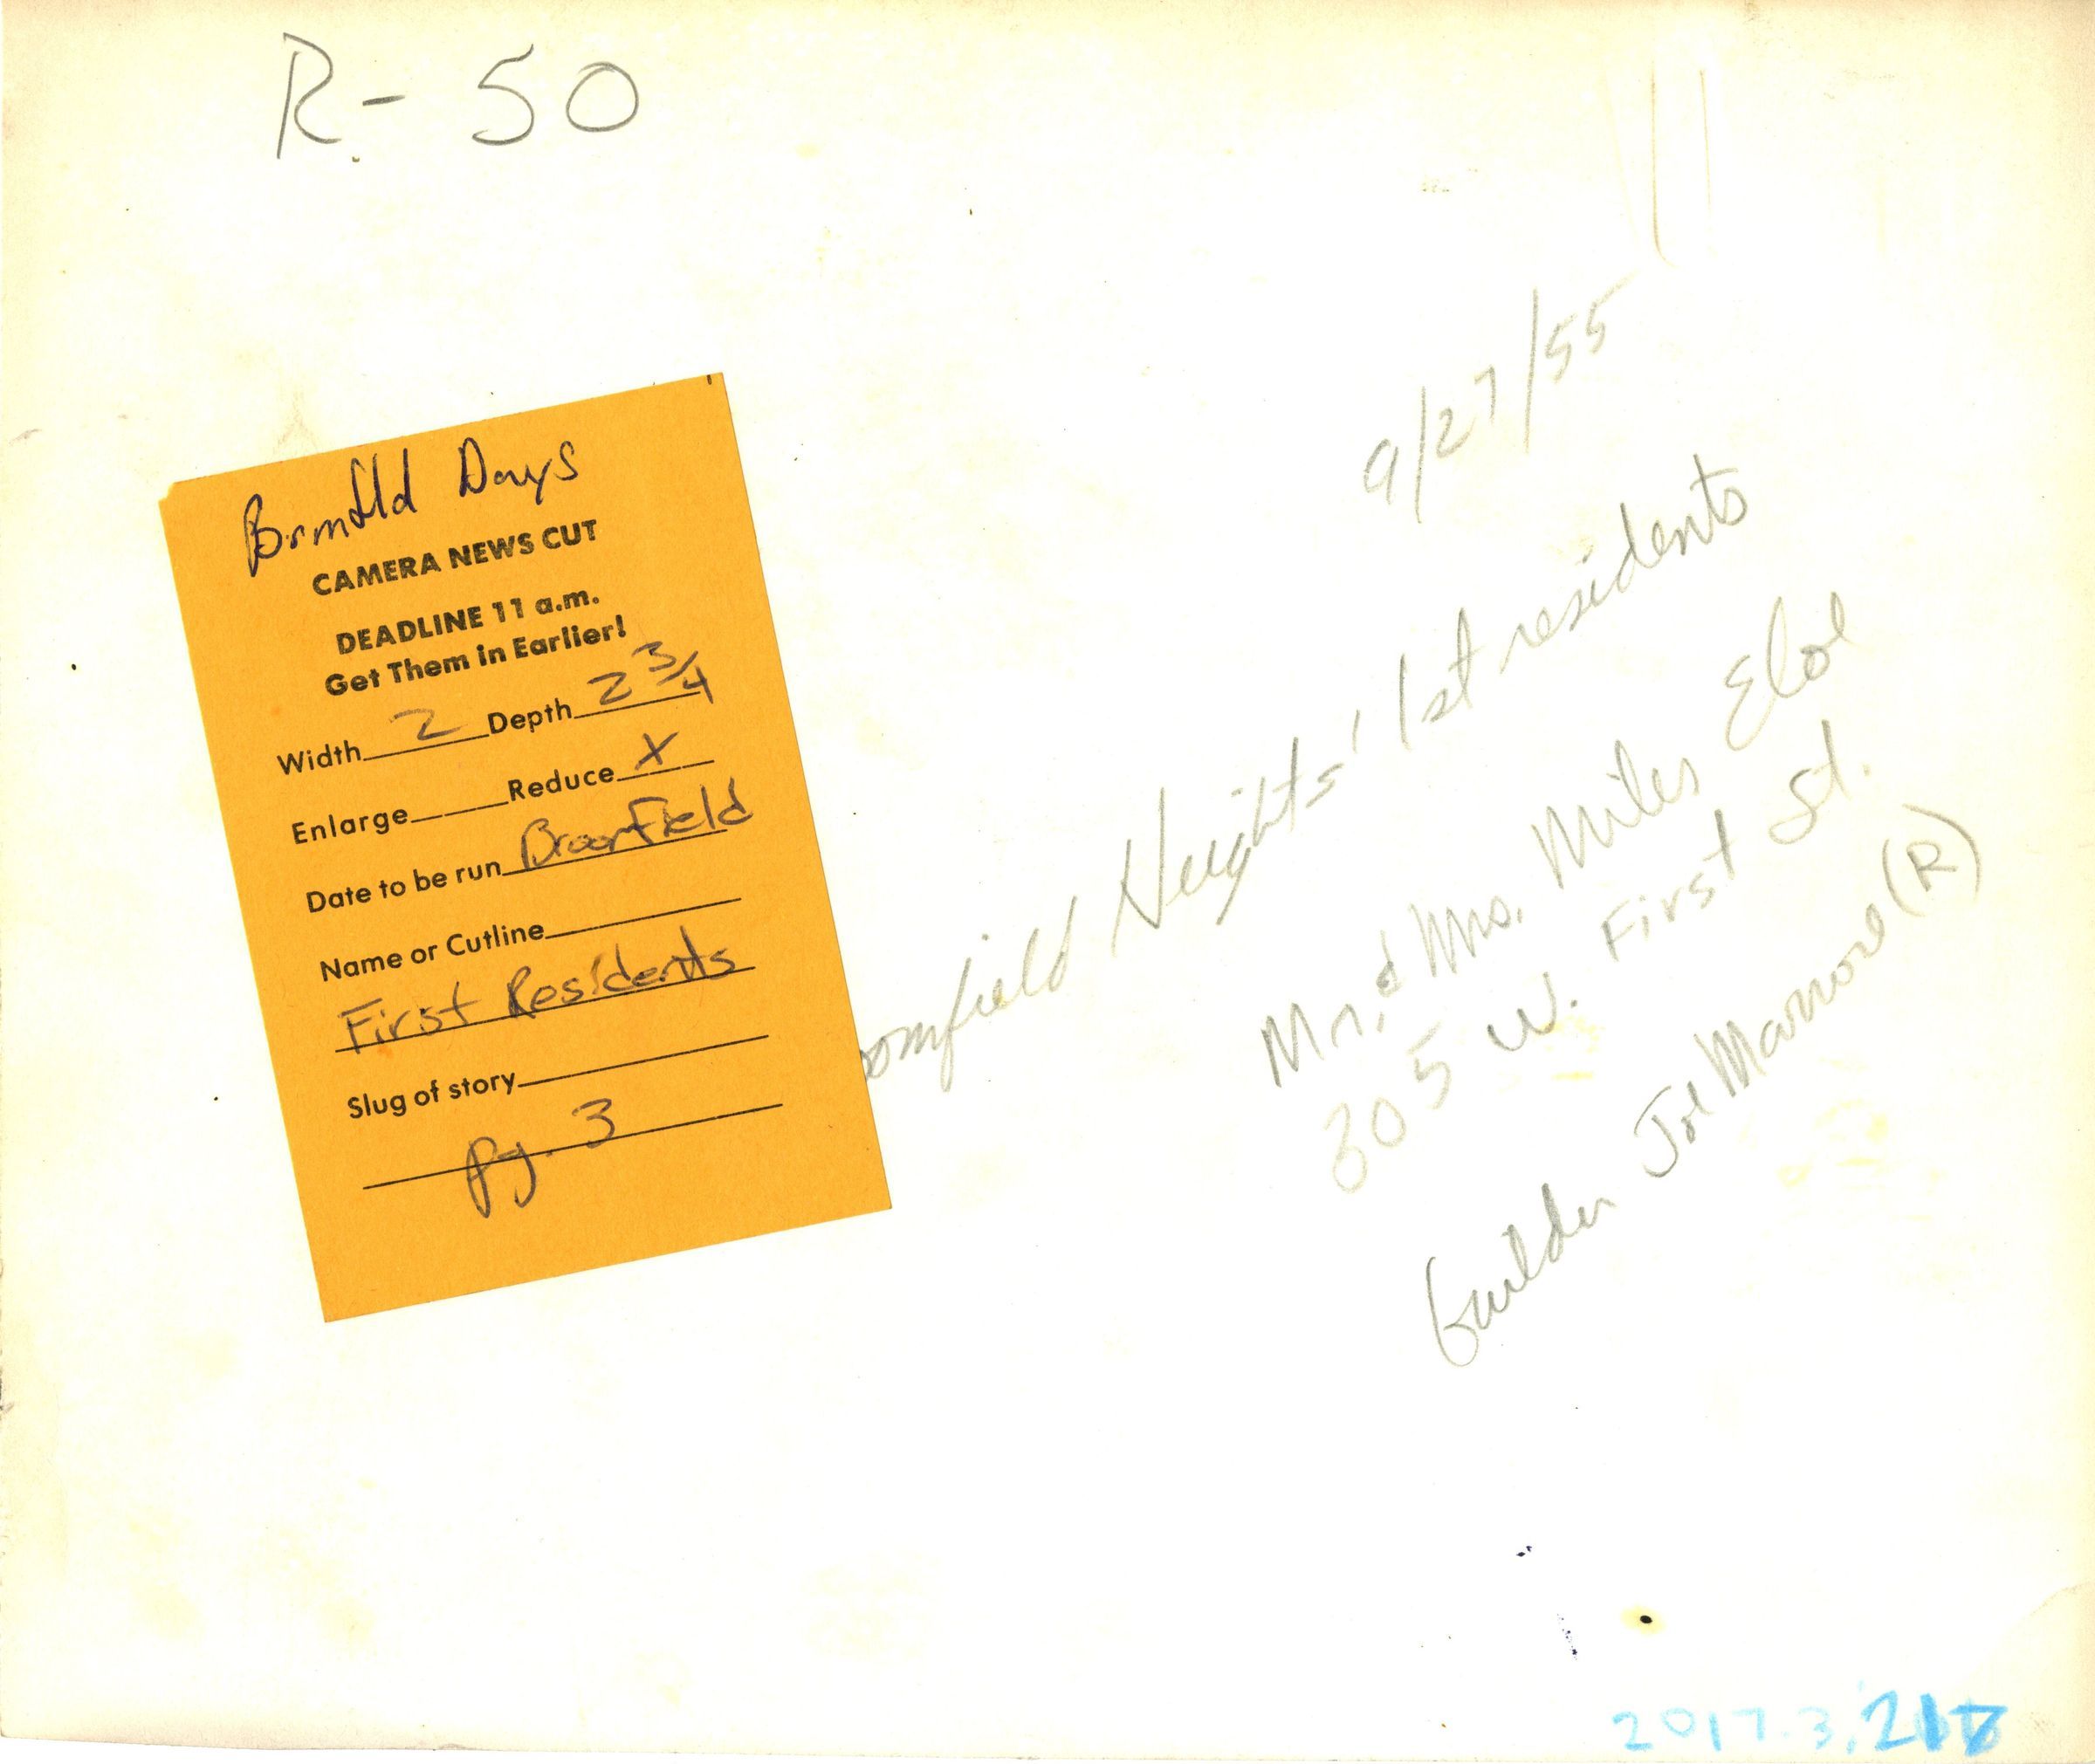 R-50
Brmfld Days
CAMERA NEWS CUT
DEADLINE 11 a.m.
Get Them in Earlier!
Width 2 Depth 2 3/4
Enlarge Reduce X
Date to be run Broomfield
Name or Cutline
First Residents
Slug of story
pg. 3
9/27/55
omfield Heights' 1st residents
Mr. & Mrs. Miles
305 W. First St.
builder Joe (R)
2017.3.